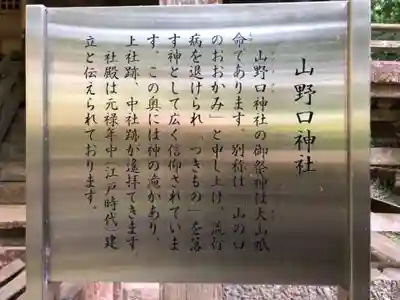 山野口神社
山野口神社の御祭神は大山祇
命であります。別称は「山の口
のおおかみ」と申し上げ、流行
病を退けられ、「つきもの」を落
す神として広く信仰されていま
す。この奥には神の滝があり、
上社跡、中社跡が遙拝できます
社殿は元禄年中(江戸時代)建
立と伝えられております。